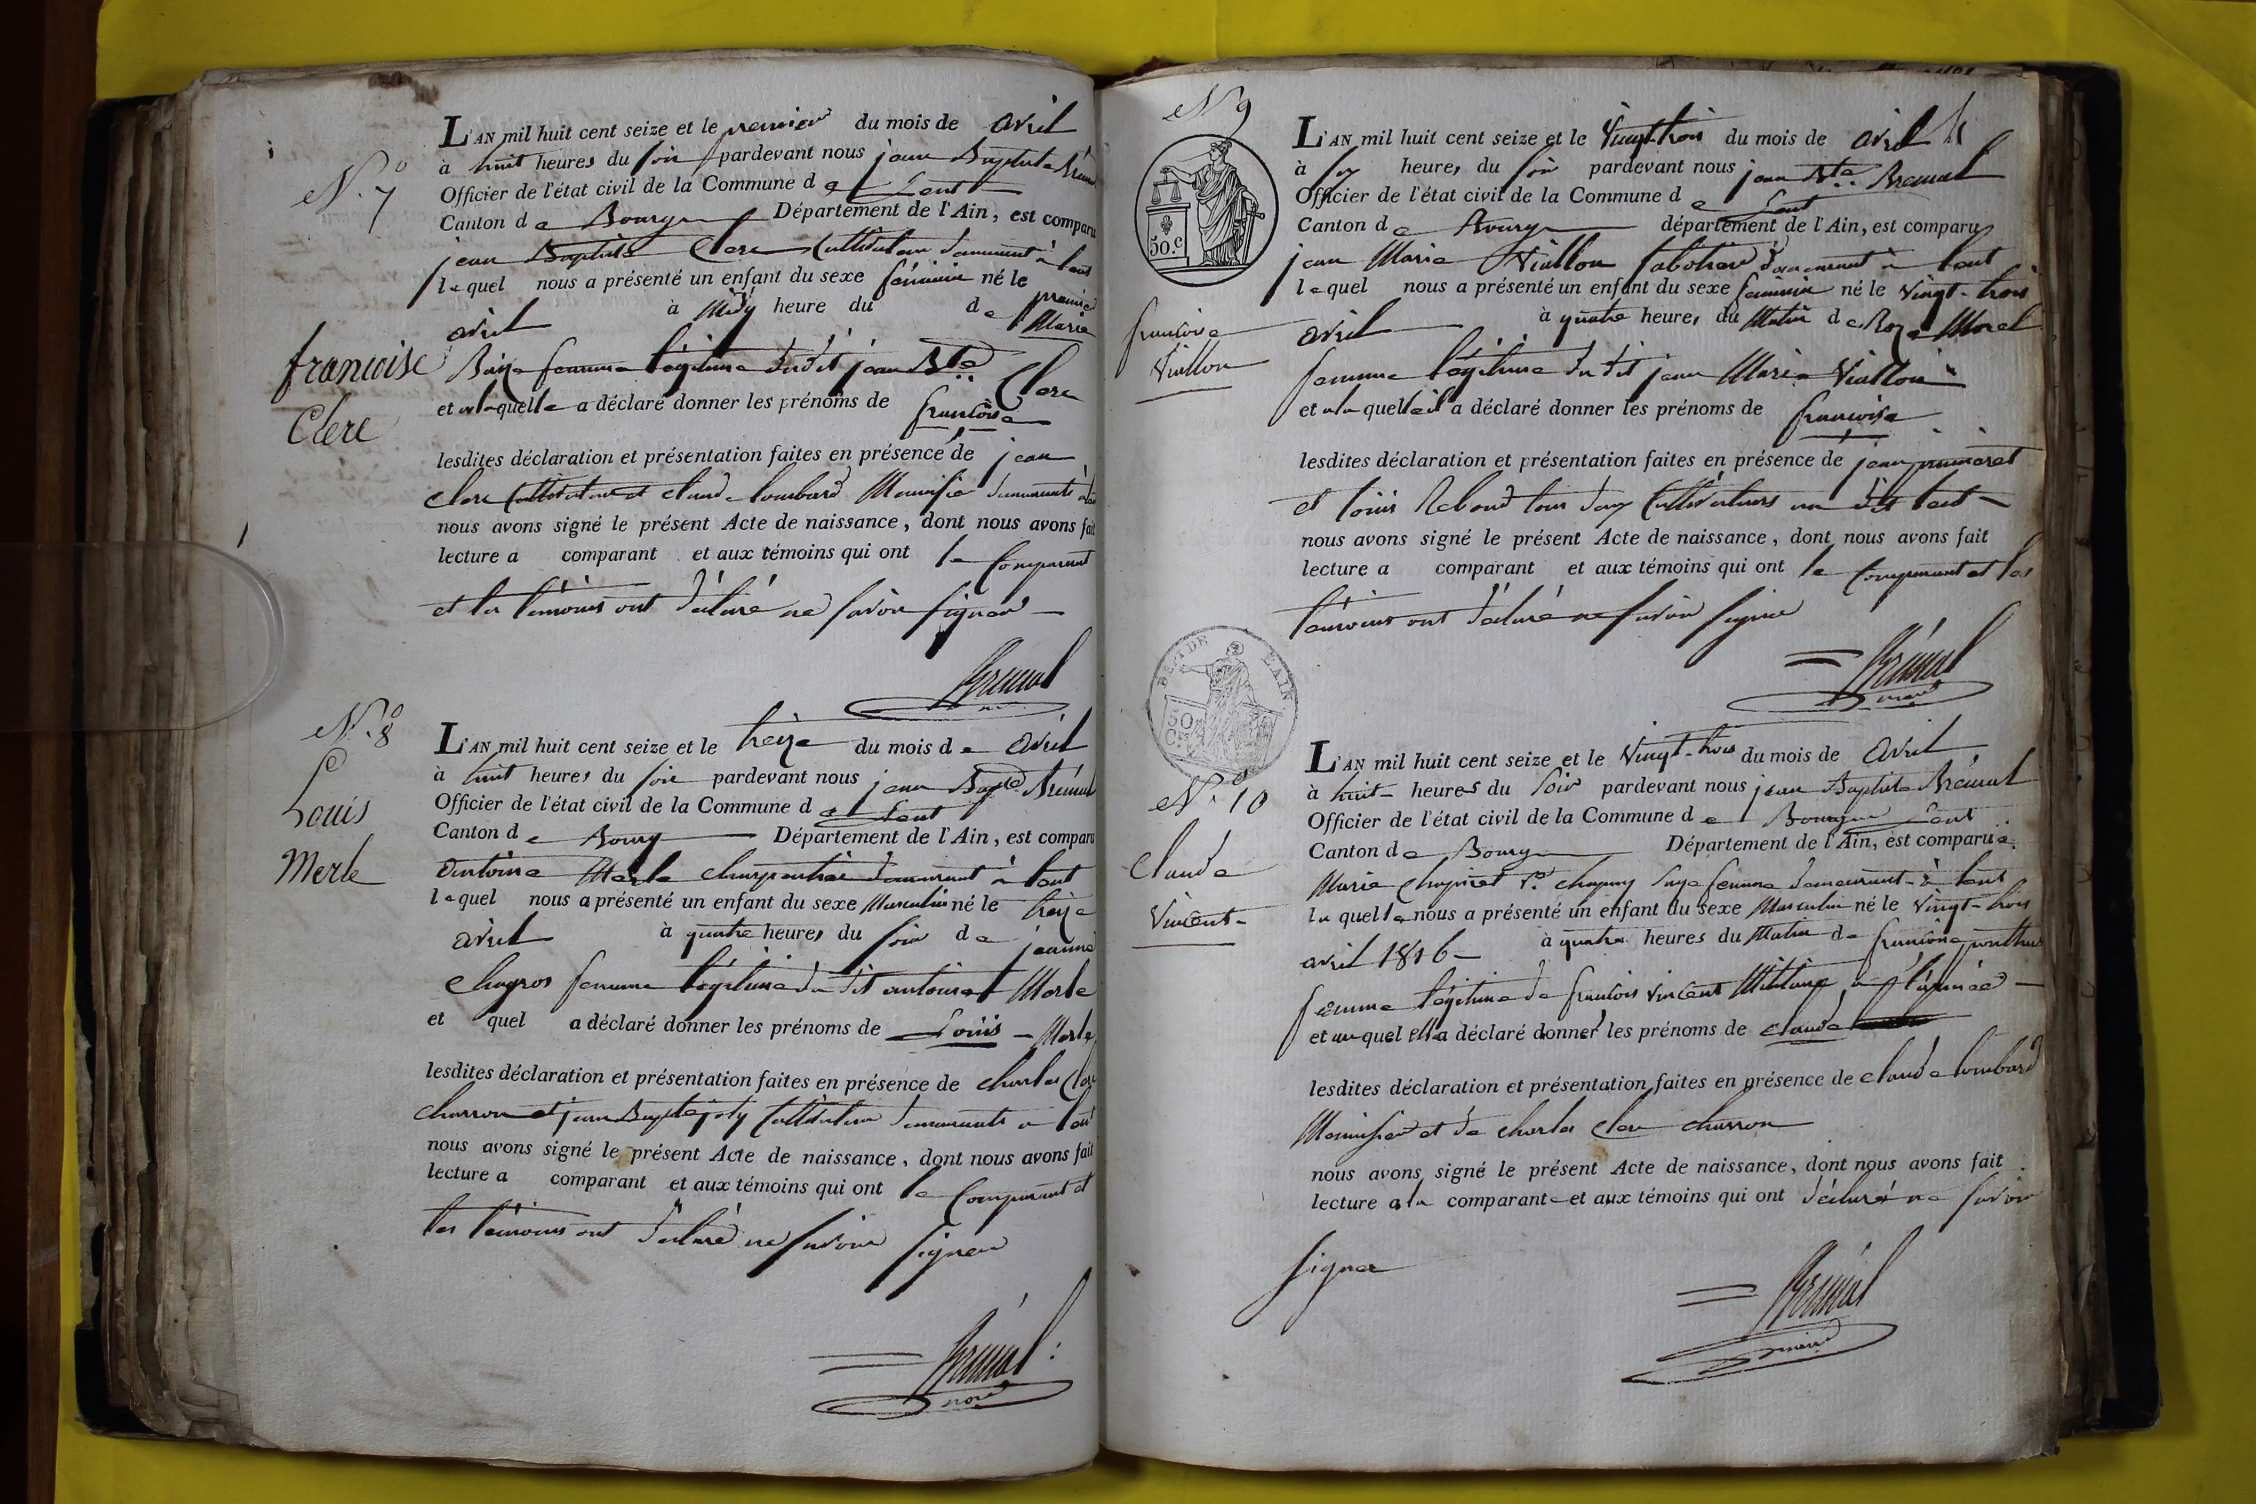 N.° 7
françoise
Clerc
L'AN mil huit cent seize et le premier du mois de avril
à huit heures du soir pardevant nous jean Baptiste Brémal
Officier de l'état civil de la Commune de Lent
Canton de Bourg Département de l'Ain, est comparu
jean Baptiste Clerc Cultivateur demeurant à Lent
lequel nous a présenté un enfant du sexe féminin né le premier
avril à Midy heure du de Marie
femme légitime dudit jean Bte Clerc
et a laquelle a déclaré donner les prénoms de françoise
lesdites déclaration et présentation faites en présence de jean
Clerc Cultivateur et claude Lombard Menuisier demeurants à Lent
nous avons signé le présent Acte de naissance, dont nous avons fait
lecture a comparant et aux témoins qui ont le Comparant
et les témoins ont déclaré ne savoir signer
Brémal
N.° 8
Louis
Merle
L'AN mil huit cent seize et le treize du mois de avril
à huit heures du soir pardevant nous jean Bapte Brémal
Officier de l'état civil de la Commune de Lent
Canton de Bourg Département de l'Ain, est comparu
Antoine Merle charpentier demeurant à Lent
lequel nous a présenté un enfant du sexe Masculin né le treize
avril à quatre heures du soir de jeanne
Chagros femme légitime du dit antoine Merle
et quel a déclaré donner les prénoms de Louis Merle
lesdites déclaration et présentation faites en présence de charles Clerc
charron et jean Bapte joly Cultivateur demeurants a Lent
nous avons signé le présent Acte de naissance, dont nous avons fait
lecture a comparant et aux témoins qui ont le Comparant et
les témoins ont déclaré ne savoir signer
Brémal
N 9
50.c
françoise
Viallon
L'AN mil huit cent seize et le vingt trois du mois de avril
à six heures du soir pardevant nous jean Bte Bremal
Officier de l'état civil de la Commune de Lent
Canton de Bourg département de l'Ain, est comparu
jean Marie Viallon sabotier demeurant à Lent
lequel nous a présenté un enfant du sexe féminin né le vingt-trois
avril à quatre heures du Matin de Roze Morel
femme légitime du dit jean Marie Viallon
et a la quelle il a déclaré donner les prénoms de françoise
lesdites déclaration et présentation faites en présence de jean
et Louis Reboud tous deux Cultivateurs au dit Lent
nous avons signé le présent Acte de naissance, dont nous avons fait
lecture a comparant et aux témoins qui ont le Comparant et les
témoins ont déclaré ne savoir signer
Brémal
DE L'AIN
50
N.° 10
Claude
Vincent
L'AN mil huit cent seize et le vingt-trois du mois de avril
à huit heures du soir pardevant nous jean Baptiste Brémal
Officier de l'état civil de la Commune de Bourg Lent
Canton de Bourg Département de l'Ain, est comparue
Marie sage femme demeurant à Lent
la quelle nous a présenté un enfant du sexe Masculin né le vingt-trois
avril 1816 à quatre heures du Matin de françoise
femme légitime de françois vincent Militaire a l'armée
et au quel ella a déclaré donner les prénoms de claude
lesdites déclaration et présentation faites en présence de claude Lombard
Menuisier et de charles Clerc charron
nous avons signé le présent Acte de naissance, dont nous avons fait
lecture a la comparante et aux témoins qui ont déclaré ne savoir
signer
Brémal